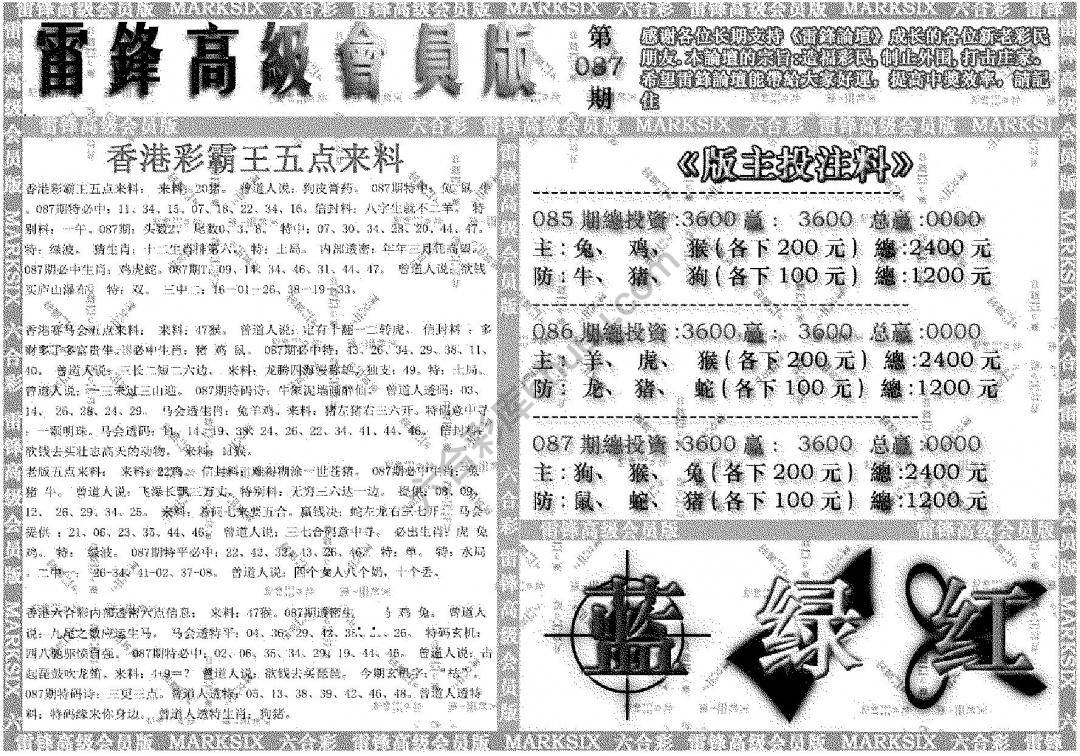 雷鋒高級會員版
第
087
期
感謝各位长期支持《雷鋒論壇》成长的各位新老彩民
朋友.本論壇的宗旨:造福彩民,制止外围,打击庄家。
希望雷鋒論壇能帶給大家好運，提高中獎效率，請記
住
雷锋高级会员版 六合彩 雷锋高级会员版 MARKSIX 六合彩 雷锋高级会员版 MARKSIX
香港彩霸王五点来料
香港彩霸王五点来料： 来料：20猪。 曾道人说：狗皮膏药。 087期特中：兔 鼠 牛
。087期特必中：11、34、15、07、18、22、34、16。信封料：八字生就不二羊。 特
别料：一午。087期：头数2， 尾数0、3、8。 特中：07、30、34、28、20、44、47。
特：绿波。 猜生肖：十二生肖排第六。 特：土局。 内部透密：年年三月花
087期必中生肖：鸡虎蛇。087期 09、14、34、46、31、44、47。 曾道人说：欲钱
买庐山瀑布。 特：双。 三中二：16-01-26、38-19-33。
香港赛马会五点来料： 来料：47猴。 曾道人说：定有十翻一二转虎。 信封料：多
财多了多富贵牛。 必中生肖：猪 鸡 鼠。 087期必中特：43、26、34、29、38、11、
40。 曾道人说：三长二短二六边。 来料：龙腾四海 独支：49。特：土局。
曾道人说：一三来过三山迎。 087期特码诗：牛象泥墙画醉仙。 曾道人透码：03、
14、26、38、24、29。 马会透生肖：兔羊鸡。来料：猪左猪右三六开。特码意中寻
。一颗明珠。马会透码：11、14、19、38、24、26、22、34、41、44、46。 信封料：
欲钱去买壮志高天的动物。 来料：11猴。
老版五点来料： 来料：22鸡。 信封料：难得糊涂一世苍猪。 087期必中生肖：兔
猪 牛。 曾道人说：飞瀑长飘三万丈。特别料：无穷三六达一边。 提供：08、09、
12、26、29、34、25。 来料：若问七来要五合。赢钱决：蛇左龙右三七开。 马会
提供：21、06、23、35、44、46。 曾道人说：三七合码意中寻。 必出生肖：虎 兔
鸡。 特： 绿波。 087期特平必中：22、42、32、43、26、46。 特：单。 特：水局
。二中一： 26-34、41-02、37-08。 曾道人说：四个女人八个奶，十个丢。
香港六合彩内部透密六点信息： 来料：47猴。087期透密生 鸡 兔。 曾道人
说：九尾之数应运生马。 马会透特平：04、36、29、42、38 26。 特码玄机：
四八驰驱愤自强。 087期特必中：02、06、35、34、29、19、44、45。 曾道人说：击
起鼓鼓吹龙箭。来料：4+9=？ 曾道人说：欲钱去买琵琶。 今期玄机字： “结”。
087期特码诗：三更三点。曾道人透特：05、13、38、39、42、46、48。曾道人透特
料：特码缘来你身边。 曾道人透特生肖：狗猪。
《版主投注料》
085期總投資:3600赢: 3600 总赢:0000
主:兔、鸡、猴(各下200元)總:2400元
防:牛、猪、狗(各下100元)總:1200元
086期總投資:3600赢: 3600 总赢:0000
主:羊、虎、猴(各下200元)總:2400元
防:龙、猪、蛇(各下100元)總:1200元
087期總投資:3600赢: 3600 总赢:0000
主:狗、猴、兔(各下200元)總:2400元
防:鼠、蛇、猪(各下100元)總:1200元
雷锋高级会员版 雷锋高级会员版
蓝 绿 红
雷锋高级会员版 MARKSIX 六合彩 雷锋高级会员版 MARKSIX 六合彩 雷锋高级会员版 MARKSIX 六合彩